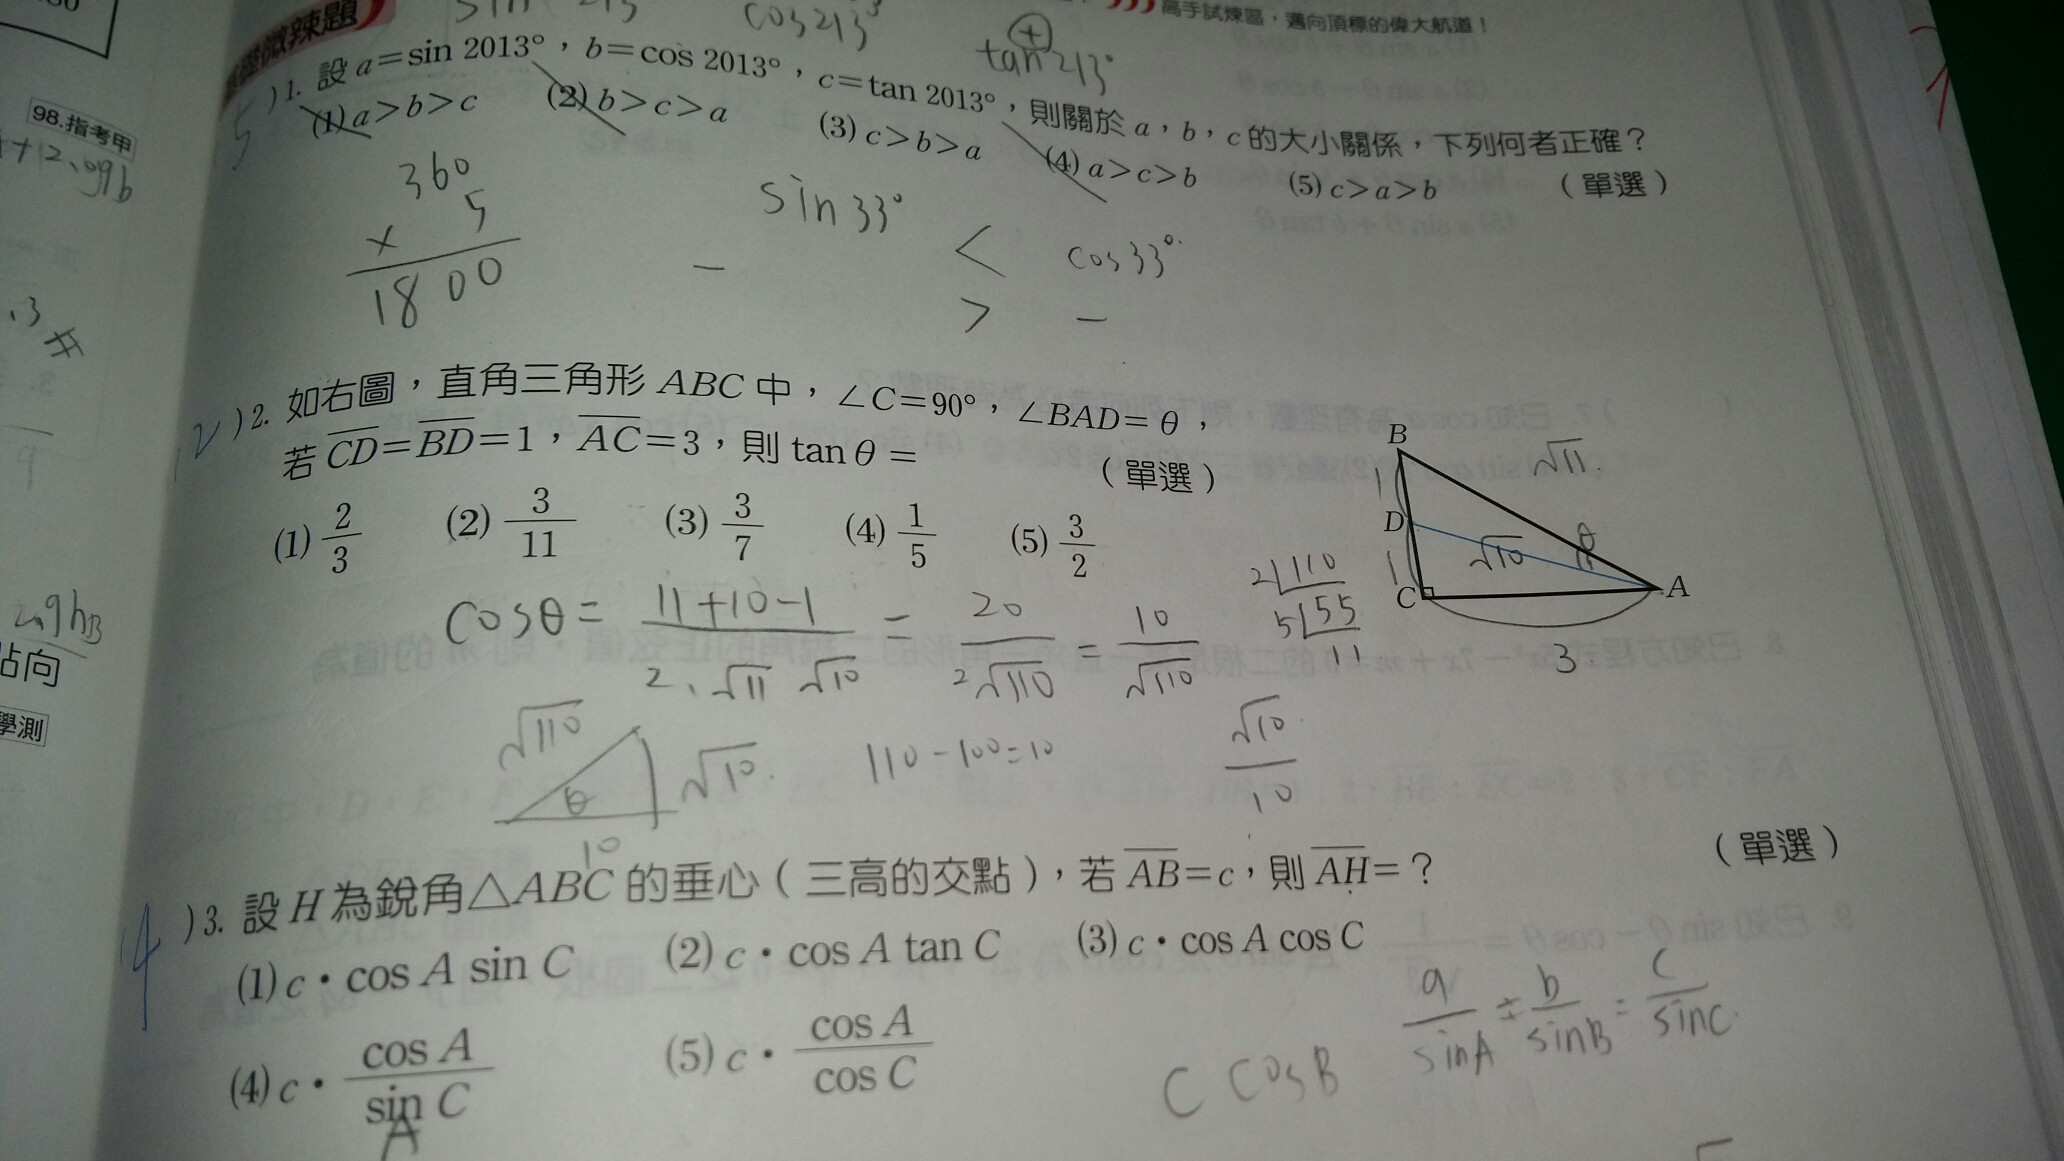 微辣題
高手試煉區，邁向頂標的偉大航道！
cos213°
tan213°
+
5
)1. 設 a＝sin 2013°，b＝cos 2013°，c＝tan 2013°，則關於 a，b，c 的大小關係，下列何者正確？
(1) a＞b＞c (2) b＞c＞a (3) c＞b＞a (4) a＞c＞b (5) c＞a＞b （單選）
98.指考甲
360
× 5
1800
sin33° < cos33°
− > −
)2. 如右圖，直角三角形 ABC 中，∠C＝90°，∠BAD＝θ，
若 CD＝BD＝1，AC＝3，則 tan θ＝ （單選）
(1) 2/3 (2) 3/11 (3) 3/7 (4) 1/5 (5) 3/2
B
√11
1
D
√10
θ
1
C
A
3
cosθ = (11+10−1)/(2·√11 √10) = 20/(2√110) = 10/√110
2 110
5 55
11
√110
θ
√10
10
110−100=10
√10/10
學測
4
)3. 設 H 為銳角△ABC 的垂心（三高的交點），若 AB＝c，則 AH＝？ （單選）
(1) c·cos A sin C (2) c·cos A tan C (3) c·cos A cos C
(4) c·cos A/sin C (5) c·cos A/cos C
A
a/sinA = b/sinB = c/sinC
C cosB